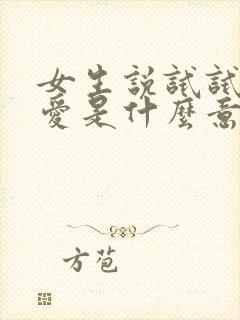 女生説試試
愛是什麼意
方苞